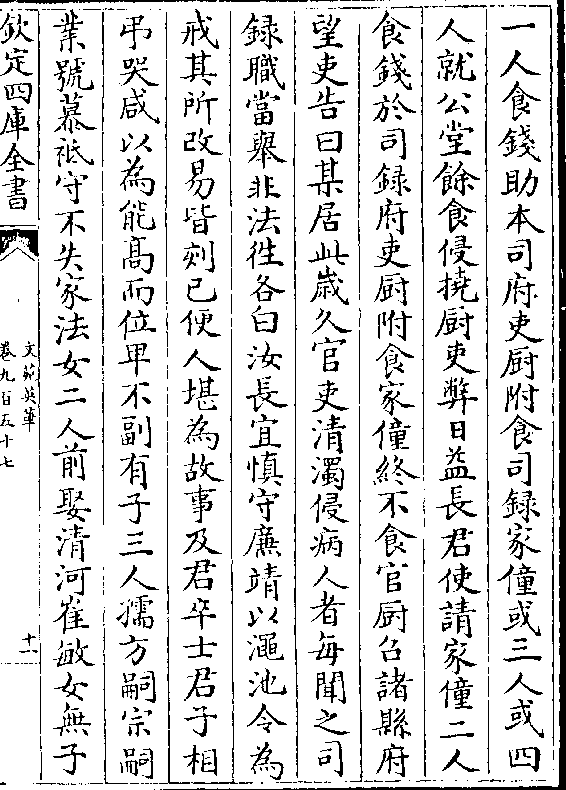 一人食錢助本司府吏厨附食司録家僮或三人或四
人就公堂餘食侵撓厨吏弊日益長君使請家僮二人
食錢於司録府吏厨附食家僮終不食官厨召諸縣府
望吏告曰某居此嵗久官吏清濁侵病人者每聞之司
録職當舉非法徃各白汝長宜慎守廉靖以澠池令為
戒其所改易皆刻已便人堪為故事及君卒士君子相
弔哭咸以為能髙而位卑不副有子三人孺方嗣宗嗣
業號慕祗守不失家法女二人前娶清河崔敏女無子
欽定四庫全書
文苑英華
卷九百五十七
十一